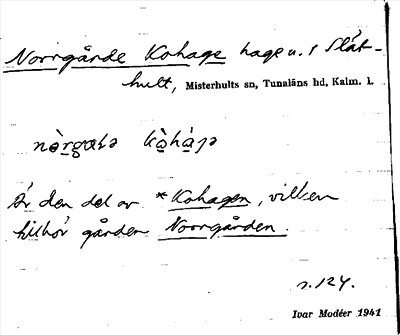 Norrgårde Kohage hage u. f Slät-
hult, Misterhults sn, Tunaläns hd, Kalm. l.
Är den del av *Kohagen, vilken
tillhör gården Norrgården.
s. 124.
Ivar Modéer 1941